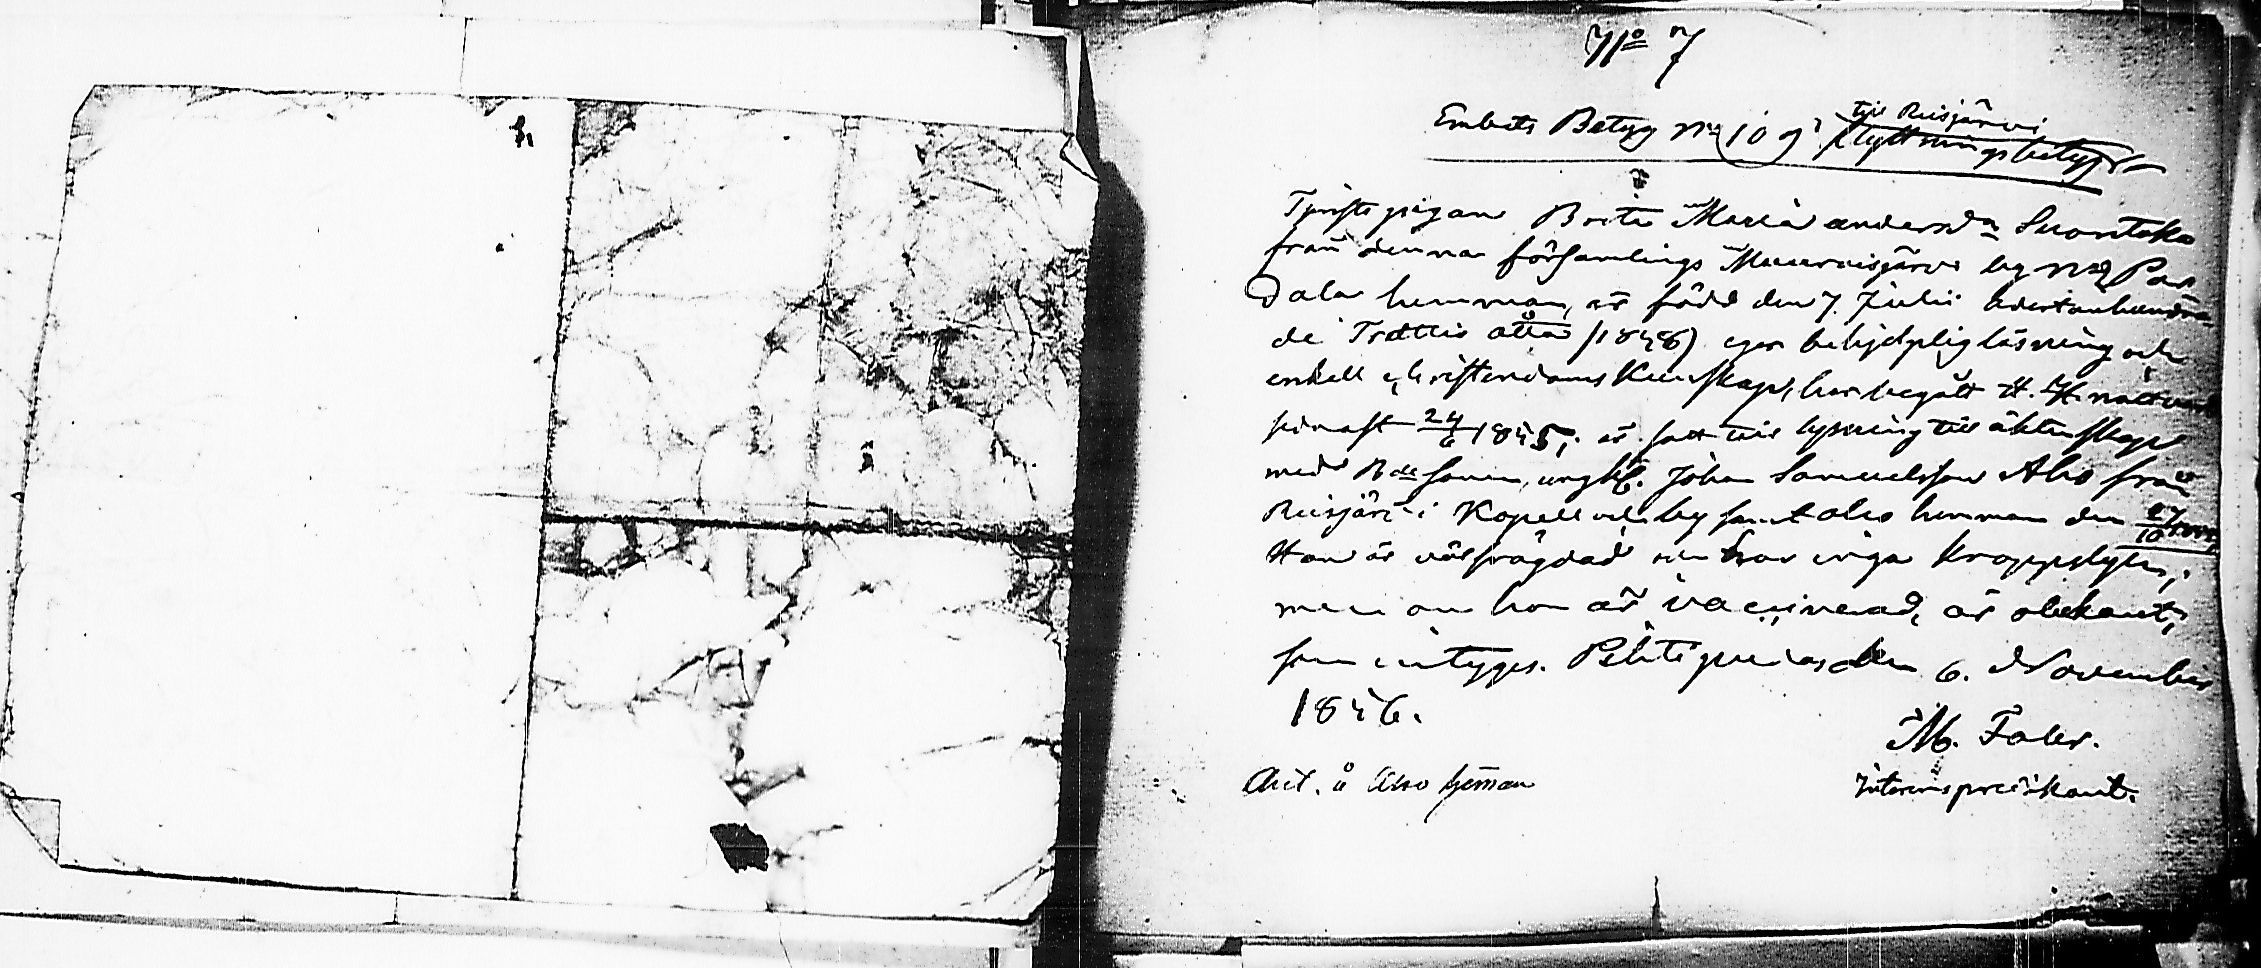 No 7
till Reisjärvi
Embets Betyg No 109 flyttningsbetyg
Tjenstepigan Brita Maria Andersdr Suontaka
från denna församlings Muurasjärvi by No 9 Par
dala hemman, är född den 7. Julii Adertonhundra-
de Trettio åtta (1828) eger behjelplig läsning och
enkell christendoms Kunskap, har begått H. H. nattvard
sednast 24/6 1845; är satt till lysning till äktenskap
med Bde sonen, ungkl. Johan Samuelsson Aho från
Reisjärvi Kapell och by samt Aho hemman den
Hon är välfrägdad och har inga kroppslyten;
men om hon är vaccinerad, är obekant,
som intygas. Pihtipudas den 6. November
1846.
M. Faler.
Interimspredikant.
Ank. å Aho hemman